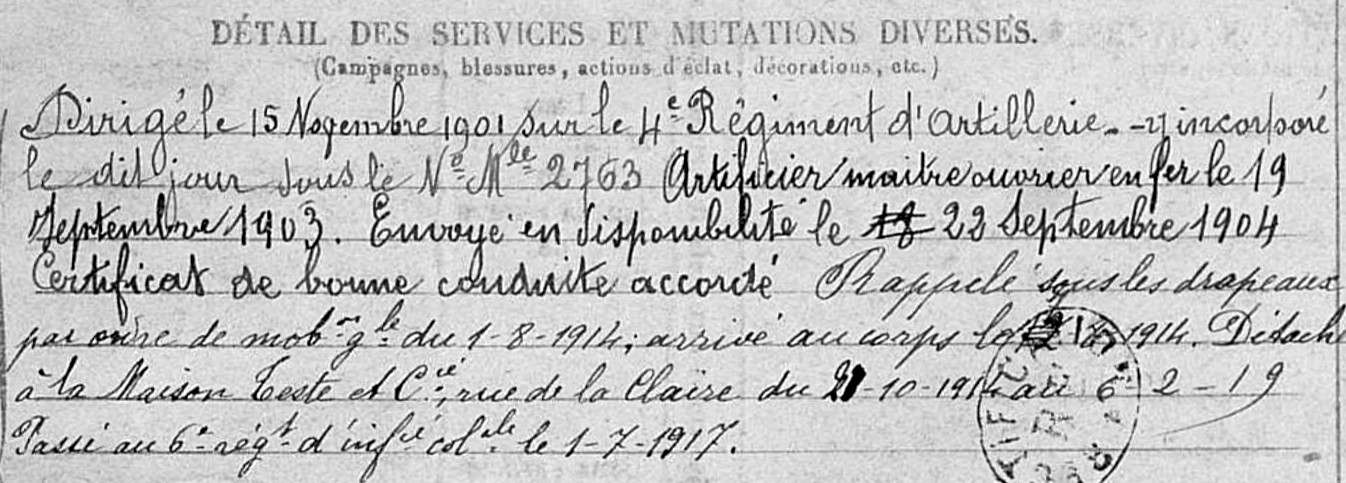 DÉTAIL DES SERVICES ET MUTATIONS DIVERSES.
(Campagnes, blessures, actions d'éclat, décorations, etc.)
Dirigé le 15 Novembre 1901 sur le 4e Régiment d'Artillerie - y incorporé
le dit jour sous le No Mle 2763 Artificier maitre ouvrier en fer le 19
Septembre 1903. Envoyé en disponibilité le 18 22 Septembre 1904
Certificat de bonne conduite accordé Rappelé sous les drapeaux
par ordre de mobon gle du 1-8-1914; arrivé au corps le 1914. Détaché
à la Maison Teste et Cie, rue de la Claire du 21-10-191 au 6-2-19
Passé au 6e régt d'infie colale le 1-7-1917.